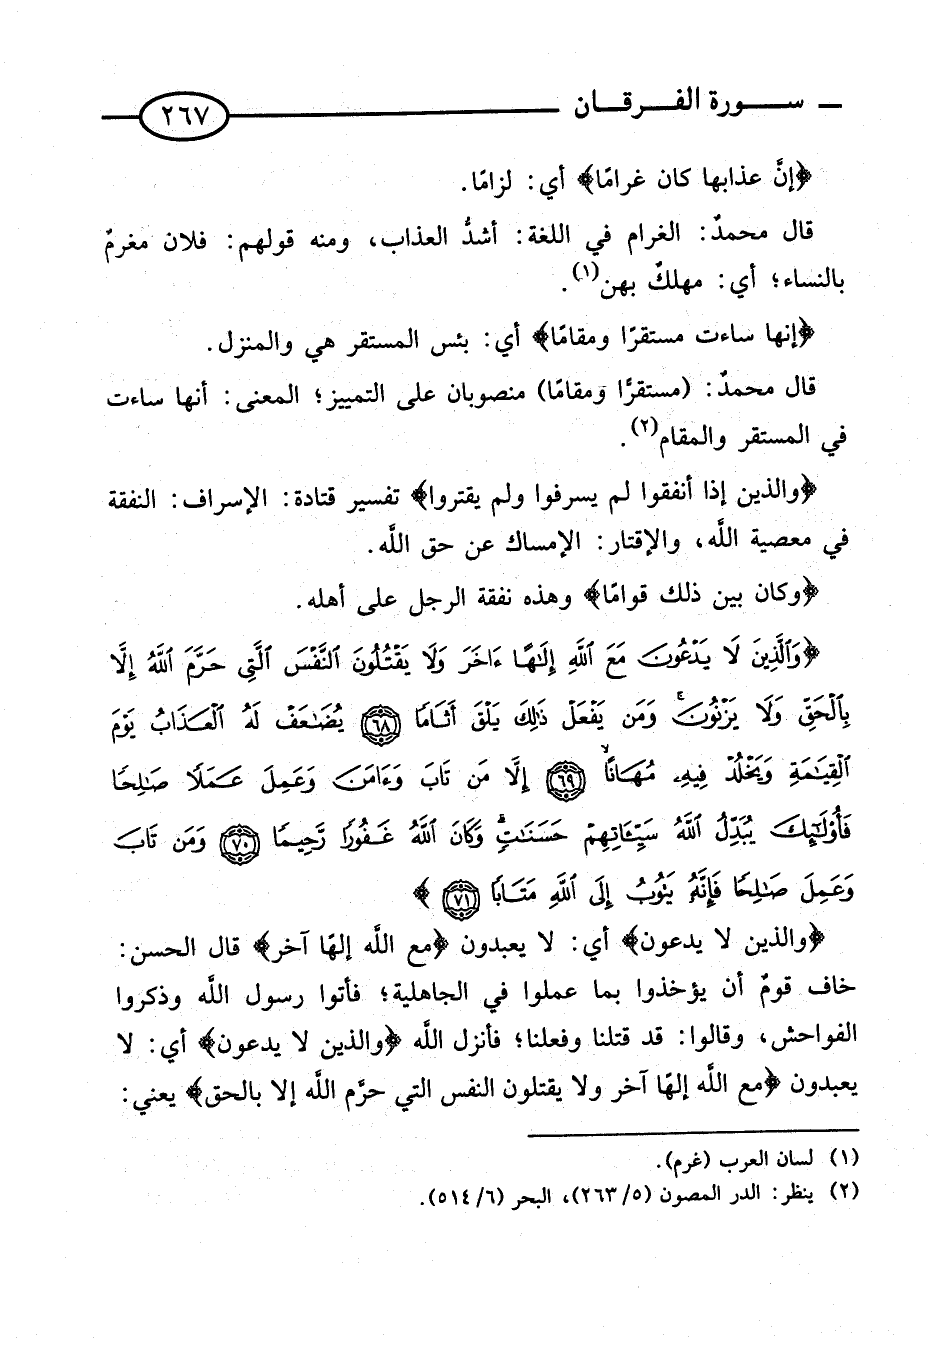 سـورة الفـرقـان ٢٦٧
﴿إنَّ عذابها كان غرامًا﴾ أي: لزامًا.
قال محمدٌ: الغرام في اللغة: أشدُّ العذاب، ومنه قولهم: فلان مغرمٌ
بالنساء؛ أي: مهلكٌ بهن(١).
﴿إنها ساءت مستقرًا ومقامًا﴾ أي: بئس المستقر هي والمنزل.
قال محمدٌ: (مستقرًّا ومقامًا) منصوبان على التمييز؛ المعنى: أنها ساءت
في المستقر والمقام(٢).
﴿والذين إذا أنفقوا لم يسرفوا ولم يقتروا﴾ تفسير قتادة: الإسراف: النفقة
في معصية اللَّه، والإقتار: الإمساك عن حق اللَّه.
﴿وكان بين ذلك قوامًا﴾ وهذه نفقة الرجل على أهله.
﴿وَٱلَّذِينَ لَا يَدْعُونَ مَعَ ٱللَّهِ إِلَٰهًا ءَاخَرَ وَلَا يَقْتُلُونَ ٱلنَّفْسَ ٱلَّتِى حَرَّمَ ٱللَّهُ إِلَّا
بِٱلْحَقِّ وَلَا يَزْنُونَۚ وَمَن يَفْعَلْ ذَٰلِكَ يَلْقَ أَثَامًا ٦٨ يُضَٰعَفْ لَهُ ٱلْعَذَابُ يَوْمَ
ٱلْقِيَٰمَةِ وَيَخْلُدْ فِيهِۦ مُهَانًا ٦٩ إِلَّا مَن تَابَ وَءَامَنَ وَعَمِلَ عَمَلًا صَٰلِحًا
فَأُو۟لَٰٓئِكَ يُبَدِّلُ ٱللَّهُ سَيِّـَٔاتِهِمْ حَسَنَٰتٍۗ وَكَانَ ٱللَّهُ غَفُورًا رَّحِيمًا ٧٠ وَمَن تَابَ
وَعَمِلَ صَٰلِحًا فَإِنَّهُۥ يَتُوبُ إِلَى ٱللَّهِ مَتَابًا ٧١﴾
﴿والذين لا يدعون﴾ أي: لا يعبدون ﴿مع اللَّه إلهًا آخر﴾ قال الحسن:
خاف قومٌ أن يؤخذوا بما عملوا في الجاهلية؛ فأتوا رسول اللَّه وذكروا
الفواحش، وقالوا: قد قتلنا وفعلنا؛ فأنزل اللَّه ﴿والذين لا يدعون﴾ أي: لا
يعبدون ﴿مع اللَّه إلهًا آخر ولا يقتلون النفس التي حرَّم اللَّه إلا بالحق﴾ يعني:
(١) لسان العرب (غرم).
(٢) ينظر: الدر المصون (٥/٢٦٣)، البحر (٦/٥١٤).